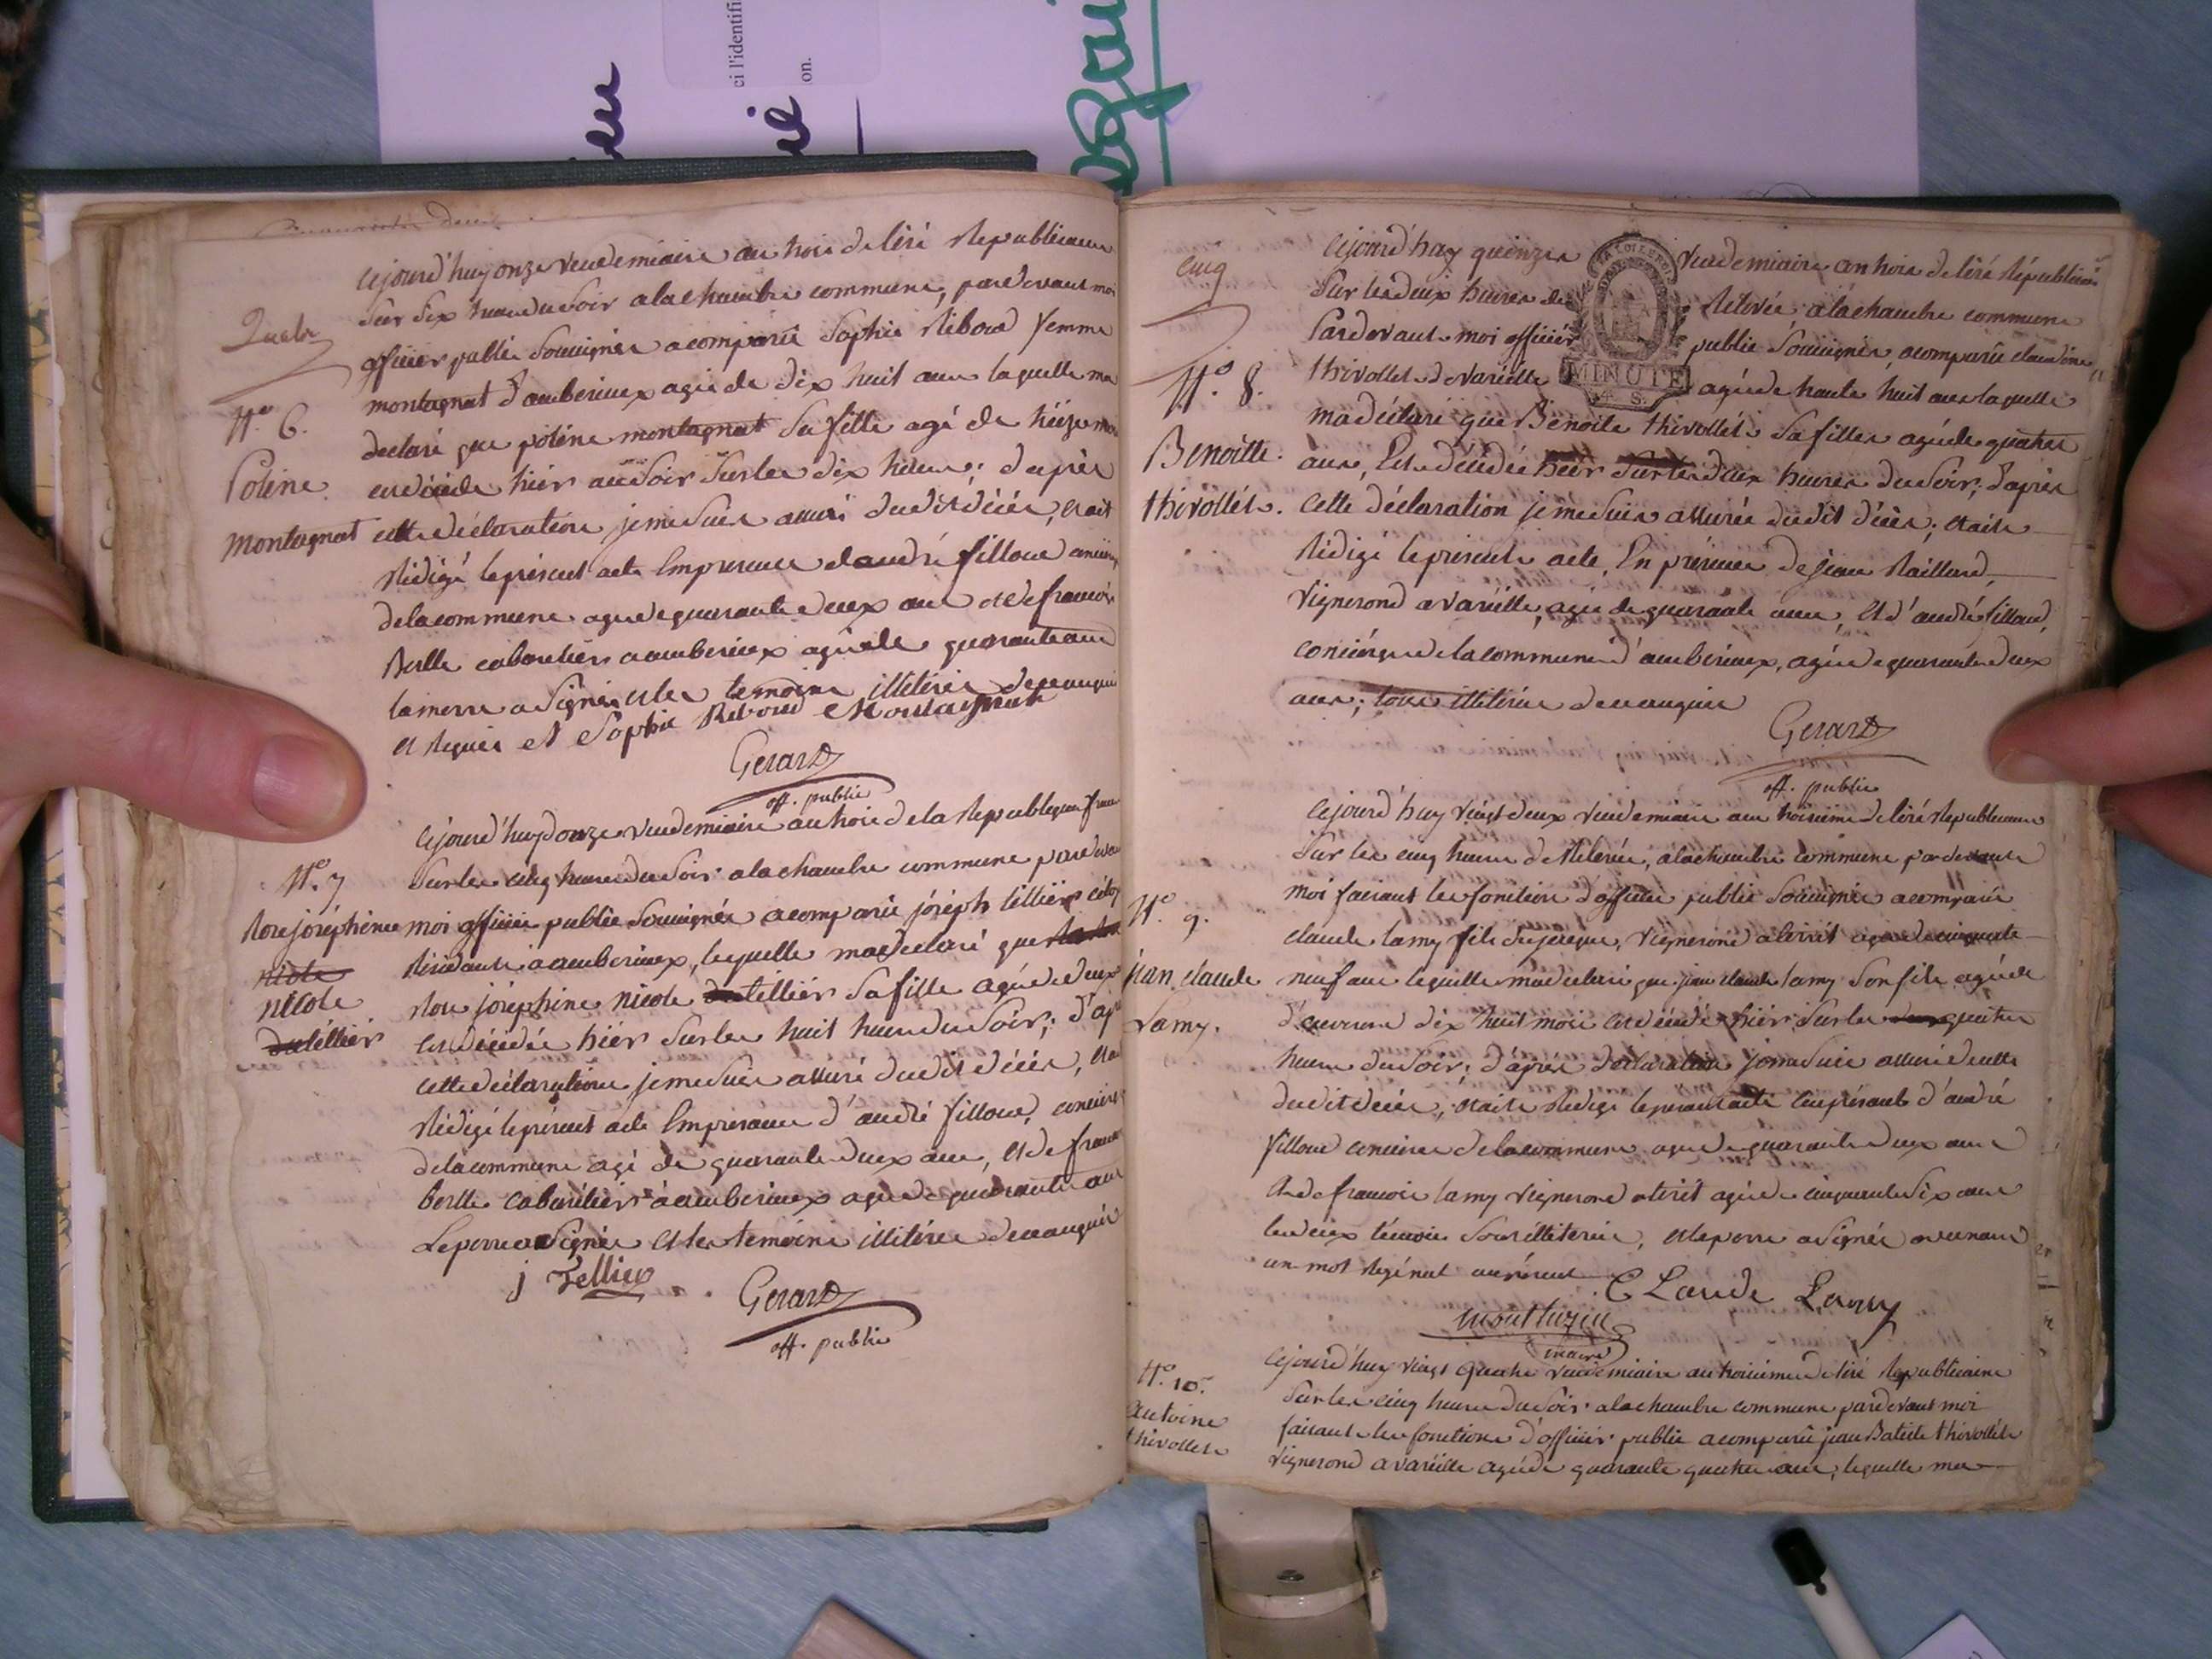 ci l'identifi
on.
Cejourd'huy onze vendemiaire an trois de l'éré Republicaine
Sur Six heure du Soir a la chambre commune, pardevant moi
officier public Soussignés a comparüe Sophie Riboud femme
montagnat d'amberieux agée de dix huit ans laquelle ma
declaré que poline montagnat Sa fille agé de treize moi
est décédé hiér au Soir Sur les dix heure; d'après
cette déclaration je me suis assuré du dit décés, et ait
Rédigé le présent acte En presence d'andré filloud concierge
de la commune agé de quarante deux ans et de francois
Belle cabaretier a amberieux agé de quarante ans
la merre a Signée et les temoins illitérés de ce enquis
et Requis et Sophie Riboud Montagnat
Gerard
off. public
N.o 6.
Poline
montagnat
Cejourd'huy douze vendemiaire an trois de la Republique fran
Sur les cinq heure du Soir a la chambre commune pardeva
moi officier public Soussignés a comparü joséph téllier citoy
Résidant a amberieux, lequelle ma declaré que
Rose joséphine nicole tellier Sa fille agée de deux
est décédée hiér Sur les huit heure du Soir; d'apr
cette déclaration je me suis assuré du dit décés, et a
Rédigé le présent acte En presence d'andré filloud, concierge
de la commune agé de quarante deux ans, et de francois
belle cabarétier a amberieux agé de quarante ans
Le perre a Signée et les temoins illitérés de ce enquis
j Tellier
Gerard
off. public
N.o 7
Rose joséphine
nicole
nicole
du téllier
cinq
Cejourd'huy quinze vendemiaire an trois de l'éré Républicaine
Sur les deux heures de Relevée a la chambre commune
Pardevant moi officiér public Soussignés, a comparüe claudine
thivollet de Varéille agée de trante huit ans laquelle
ma déclaré que Benoite thivollét Sa fille agée de quatres
ans, Est décédée hiér Sur les deux heures du Soir; d'après
Cette déclaration je me suis assurés du dit décès; et ait
Rédigé le présente acte, En présence de jean Raillard,
Vignerond a varéille, agé de quarante ans, Et d'andré filloud,
concierge de la commune d'amberieux, agé de quarante deux
ans; tous illitérés de ce enquis
Gerard
off. public
MINUTE
4 S.
N.o 8.
Benoitte
thivollét.
Cejourd'huy vingt deux vendemiaire an troisiéme de l'éré Republicaine
Sur les cinq heure de Relevée, a la chambre commune pardevant
moi faisant les fonction d'officier public Soussignés a comparüe
claude Lamy fils de jacque, vignerond a tiret agé de cinquante
neuf ans lequelle ma declaré que jean claude Lamy Son fils agée de
d'environ dix huit mois est décédé hiér Sur les quatre
heure du Soir; d'après déclaration je me suis assuré de cette
du dit décés, et ait Rédigé le présent acte en présent d'andré
filloud concierge de la commune agé de quarante deux ans
et de francois Lamy vignerond a tirét agé de cinquante Six ans
les deux témoins Sont illitérés, et le perre a Signés avec nous
C Laude Lamy
maire
N.o 9.
jean claude
Lamy.
Cejourd'huy vingt quatre vendemiaire an troisiéme de l'éré Republicaine
Sur les cinq heure du Soir a la chambre commune pardevant moi
faisant les fonctions d'officiér public a comparü jean Batiste thivollét
Vignerond a varéille agé de quarante quatre ans, lequelle ma
N.o 10.
Antoine
thivollét